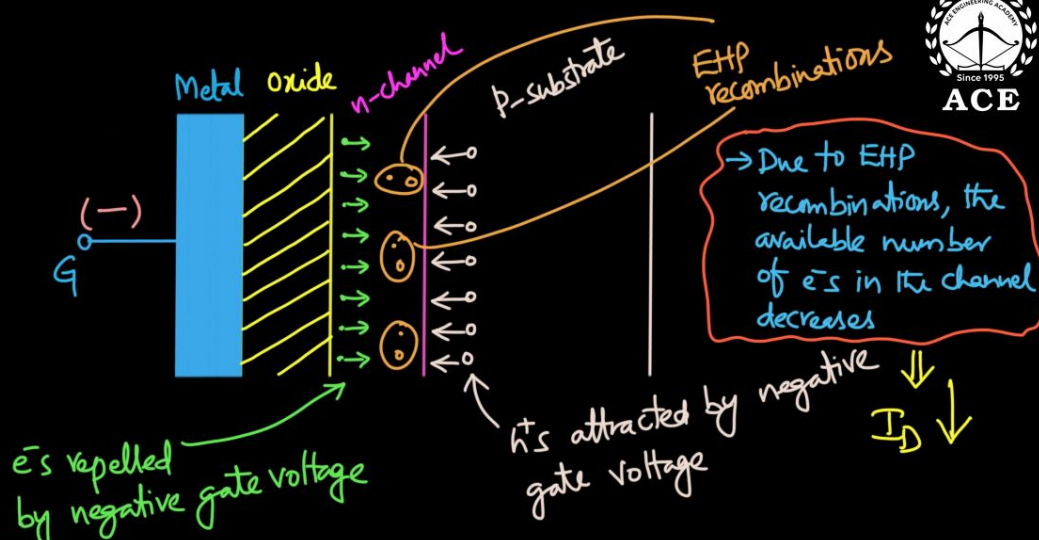 ACE ENGINEERING ACADEMY
Since 1995
ACE
Metal
Oxide
n-channel
p-substrate
EHP
recombinations
(-)
G
→ Due to EHP
recombinations, the
available number
of e⁻s in the channel
decreases
⇓
I_D ↓
e⁻s repelled
by negative gate voltage
h⁺s attracted by negative
gate voltage